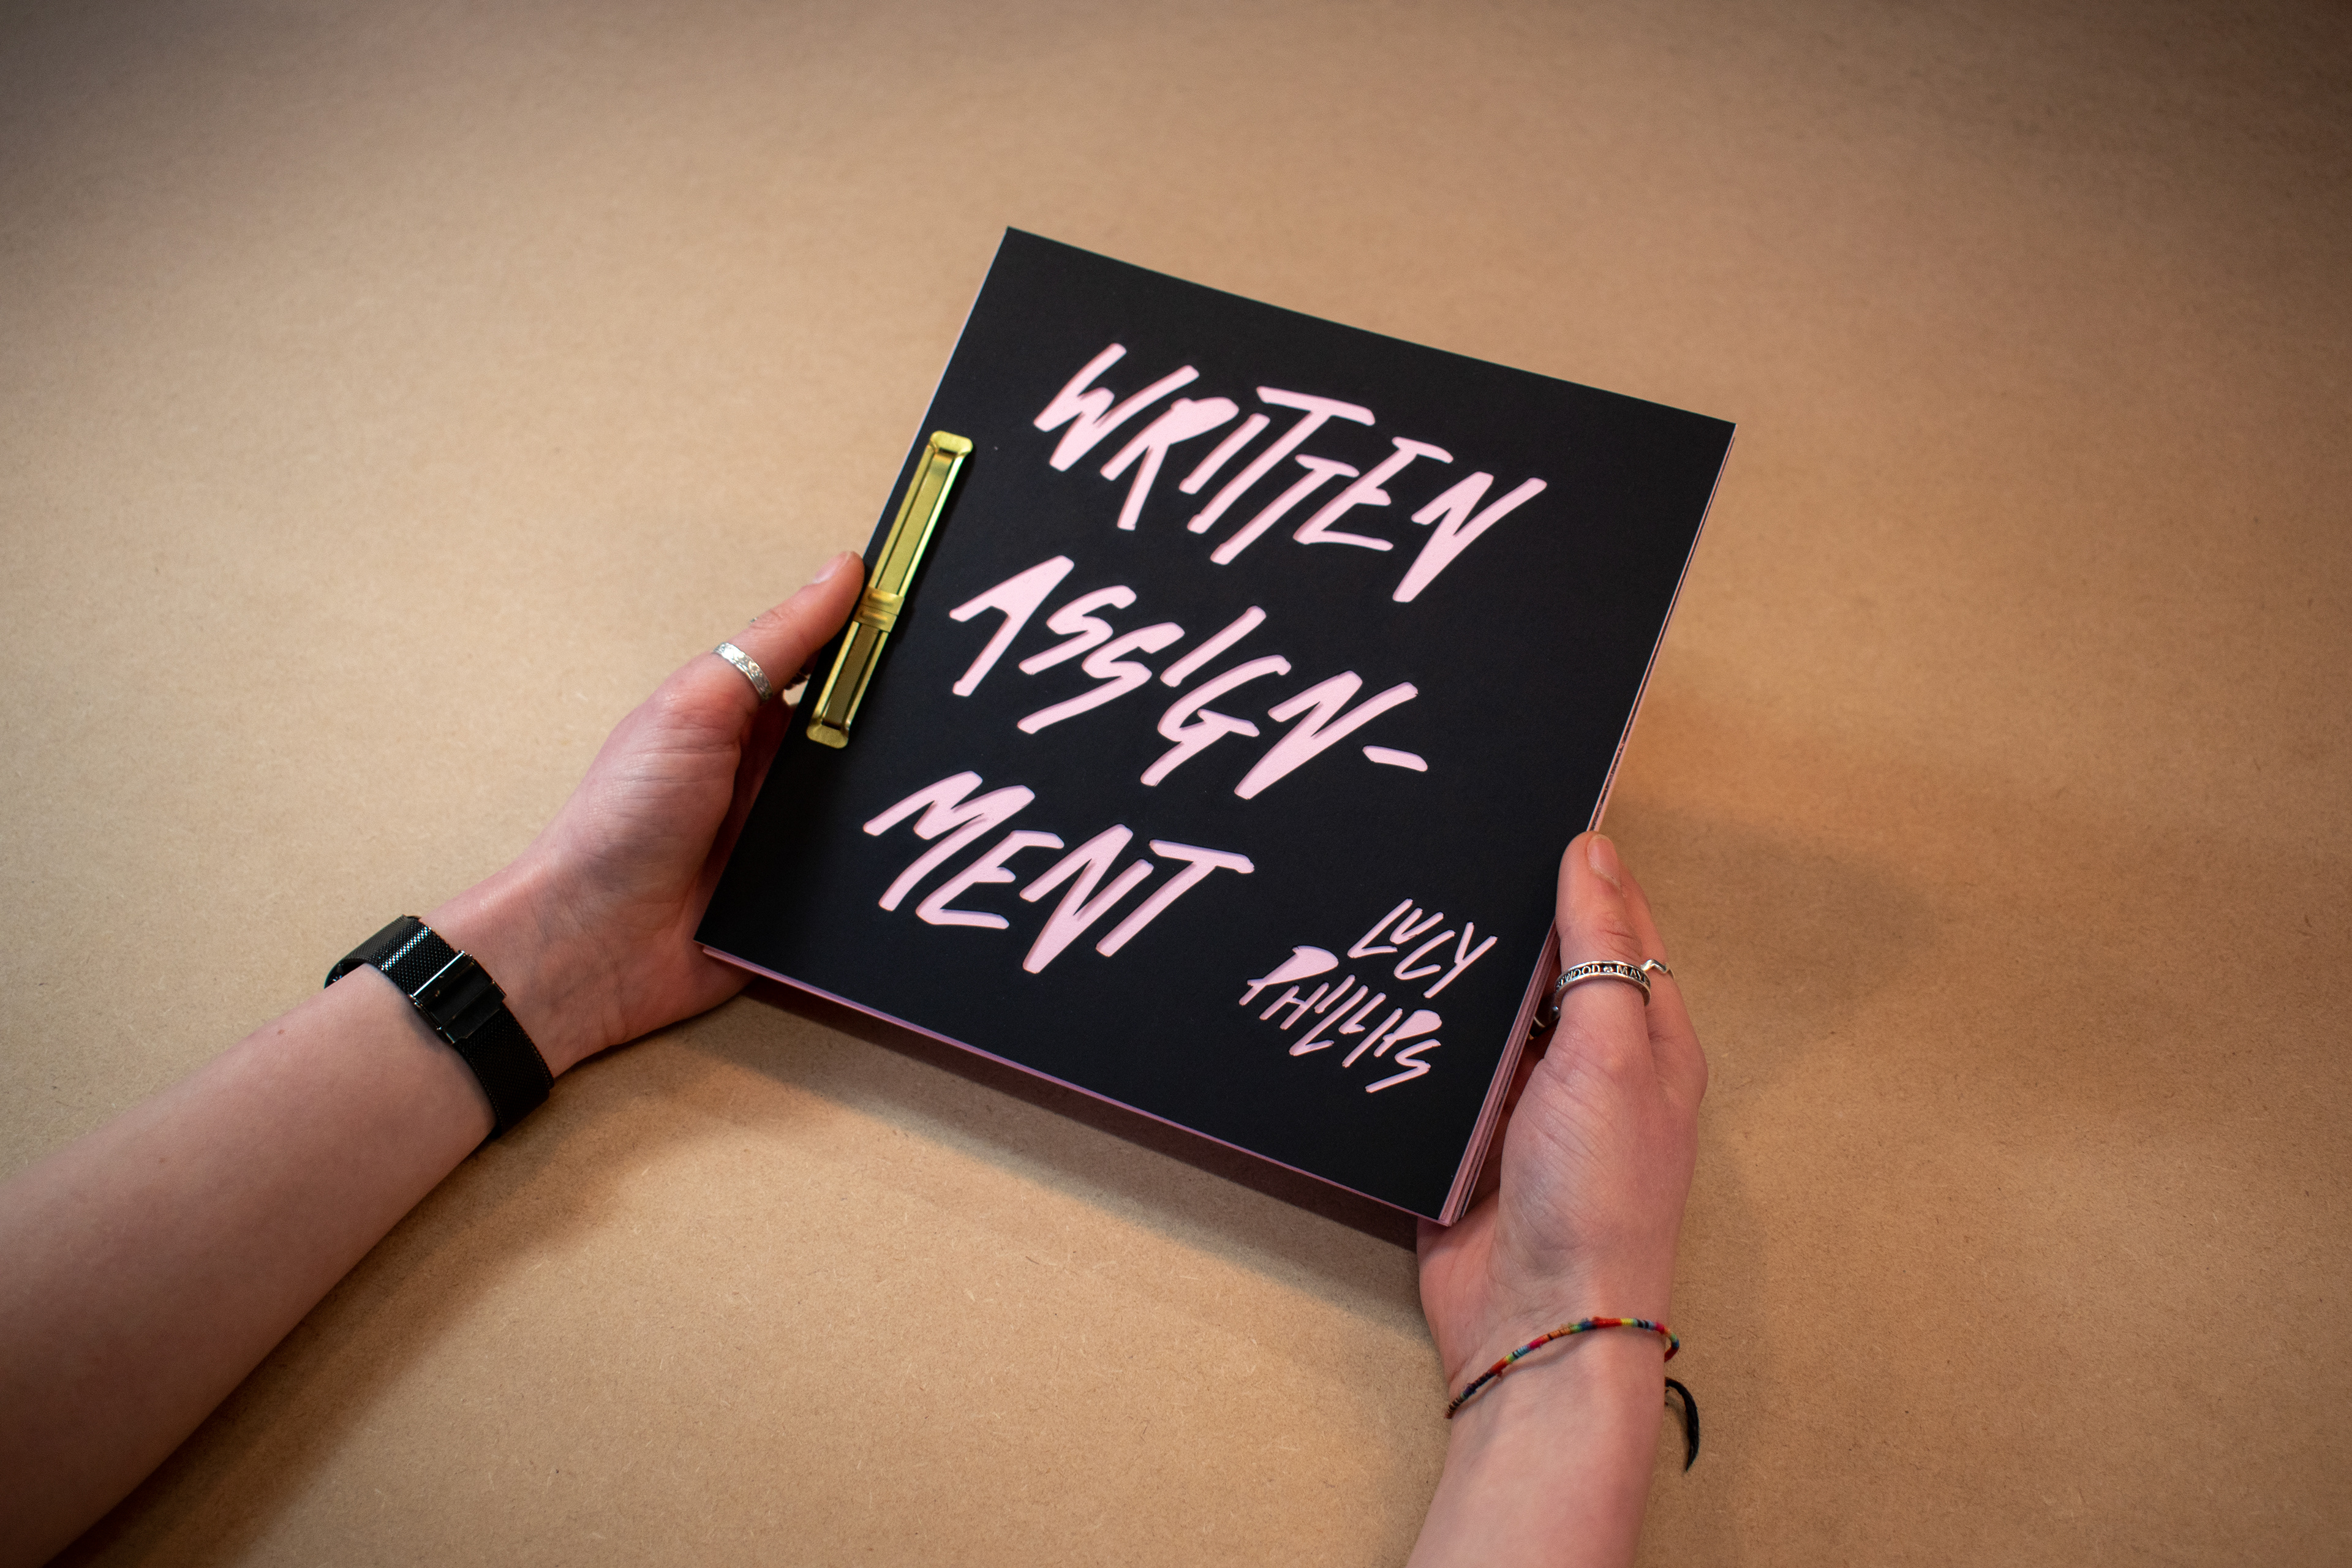 WRITTEN
ASSIGN-
MENT
LUCY
PHILLIPS